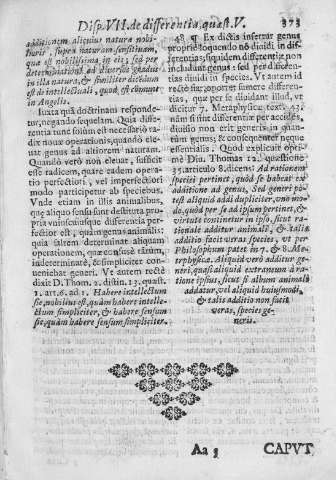 Disp. VII. de differentia, quæst. V. 373
additionem alicuius naturæ nobi-
lioris, supra naturam sensitivam,
quæ est nobilissima in eis; sed per
determinationē ad diversos gradus
in illa natura
est de intellectuali, quod est commune
in Angelis.
Iuxta quā doctrinam responde-
tur, negando sequelam. Quia diffe-
rentia tunc solum est necessariò ra-
dix novæ operationis, quando ele-
vat genus ad altiorem naturam.
Quando verò non elevat, sufficit
esse radicem, quare eadem opera-
tio perfectiori, vel imperfectiori
modo participetur ab speciebus.
Vnde etiam in illis animalibus,
quæ aliquo sensu sunt destituta, pro-
pria vniuscuiusque differentia per-
fectior est, quàm genus animalis:
quia saltem determinat aliquam
operationem, quæ cōfusè tātum,
indeterminatè, & simpliciter con-
veniebat generi. Vt autem rectè
dixit D. Thom. 2. distin. 13. quæst.
1. art. 6. ad 1. Habere intellectum
sic, nobilius est, quàm habere intelle-
ctum simpliciter, & habere sensum
sic, quàm habere sensum simpliciter.
48 ¶ Ex dictis infertur genus
propriè loquendo nō dividi in dif-
ferentias; siquidem differentiæ non
includunt genus: sed per differen-
tias dividi in species. Vt autem id
rectè fiat, oportet sumere differen-
tias, quæ per se dividant illud, vt
dicitur 7. Metaphysicæ text. 43.
nàm si sunt differentiæ per accidēs,
divisio non erit generis in quan-
tùm genus, & consequenter neque
essentialis. Quod explicuit opti-
mè Diu. Thomas 12. quæstione
35. articulo 8. dicens: Ad rationem
speciei pertinet, quòd se habeat ex
additione ad genus, Sed generi po-
test aliquid addi dupliciter, vno mo-
do, quòd per se ad ipsum pertinet, &
virtute continetur in ipso, sicut ra-
tionale additur animali, & talis
additio facit veras species, vt per
Philosophum patet in 7. & 8. Me-
taphysicæ. Aliquid verò additur ge-
neri, quasi aliquid extraneum à ra-
tione ipsius, sicut si album animali
addatur, vel aliquid huiusmodi,
& talis additio non facit
veras, species ge-
neris.
Aa 3 CAPVT